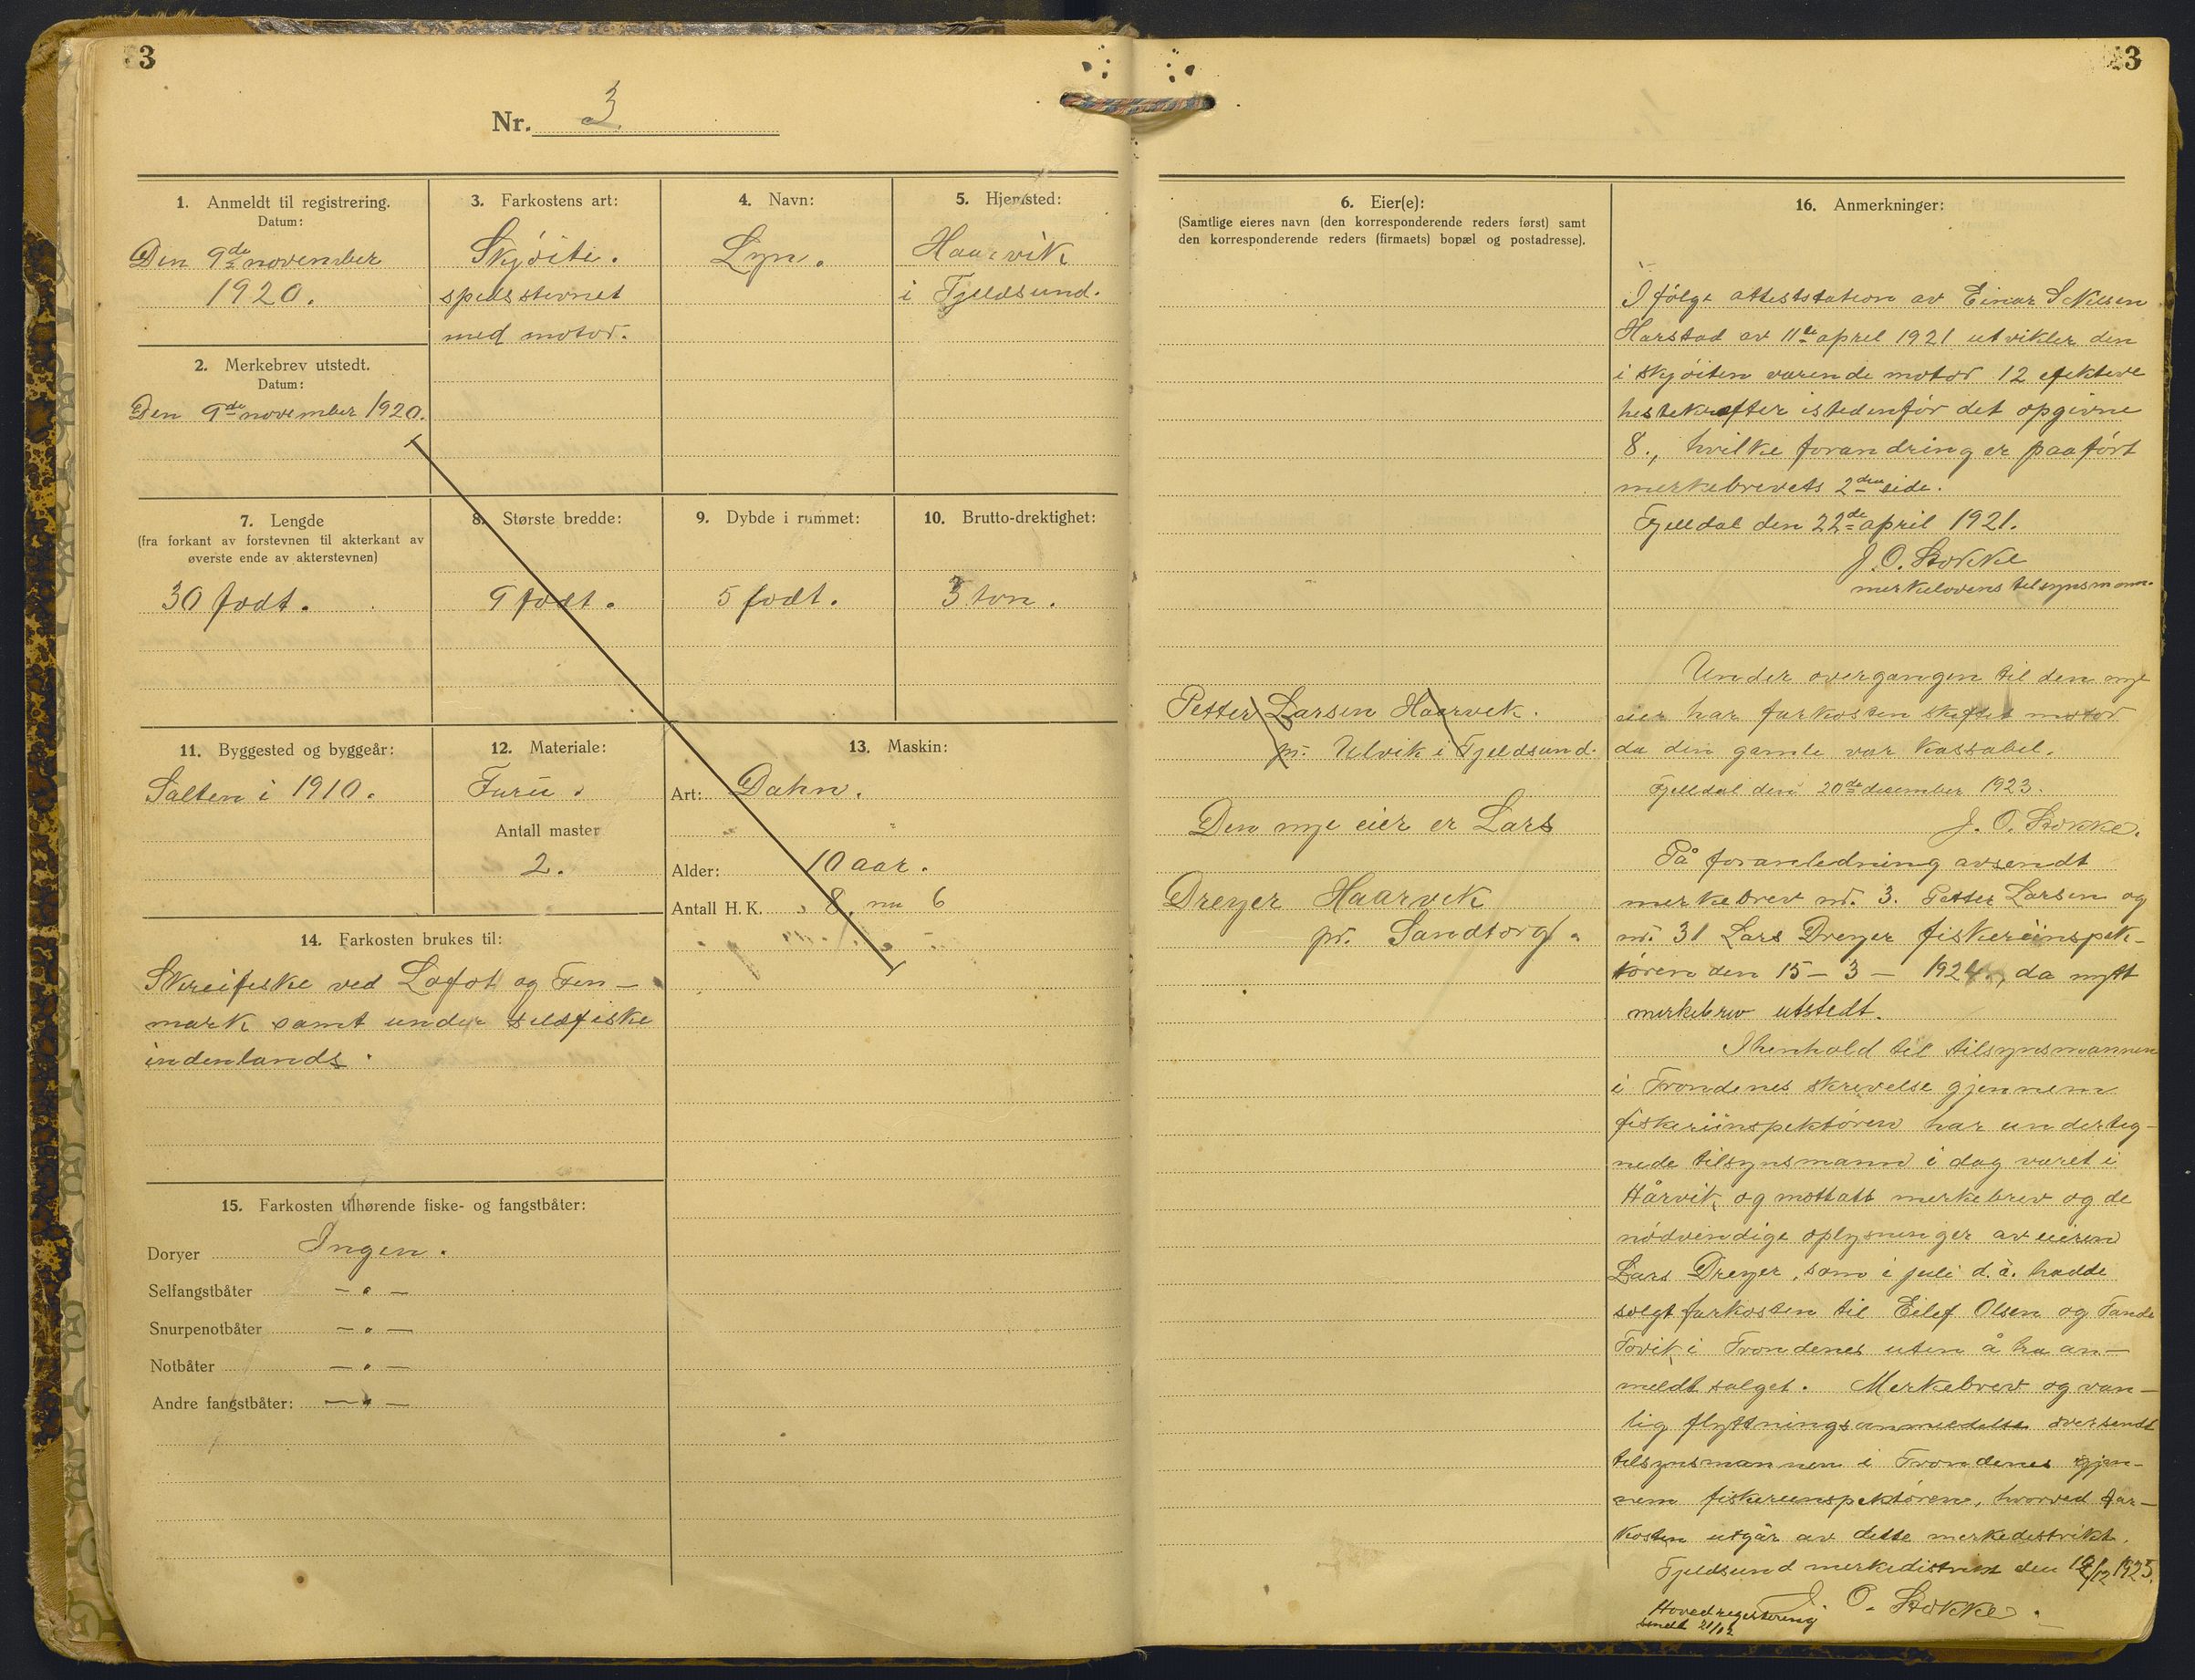 3
Nr. 3
1. Anmeldt til registrering.
Datum:
Den 9de november
1920.
2. Merkebrev utstedt.
Datum:
Den 9de november 1920.
3. Farkostens art:
Skjöite.
spidsstevnet
med motor.
4. Navn:
Lyn.
5. Hjemsted:
Haarvik
i Fjeldsund.
7. Lengde
(fra forkant av forstevnen til akterkant av
øverste ende av akterstevnen)
30 fodt.
8. Største bredde:
9 fodt.
9. Dybde i rummet:
5 fodt.
10. Brutto-drektighet:
3 ton.
11. Byggested og byggeår:
Salten i 1910.
12. Materiale:
Furu.
Antall master
2.
13. Maskin:
Art: Dahn.
Alder: 10 aar.
Antall H. K. 8. nu 6
14. Farkosten brukes til:
Skreifiske ved Lofot og Fin-
mark samt under sildfiske
indenlands.
15. Farkosten tilhørende fiske- og fangstbåter:
Doryer Ingen.
Selfangstbåter -"-
Snurpenotbåter -"-
Notbåter -"-
Andre fangstbåter: -"-
3
6. Eier(e):
(Samtlige eieres navn (den korresponderende reders først) samt
den korresponderende reders (firmaets) bopæl og postadresse).
Petter Larsen Haarvik.
pr. Ulvik i Fjeldsund.
Den nye eier er Lars
Dreyer Haarvik
pr. Sandtorg.
16. Anmerkninger:
I følge atteststation av Einar S Nilsen
Harstad av 11te april 1921 utvikler den
i skjöiten varende motor 12 efektive
hestekrefter istedenfor det opgivne
8., hvilke forandring er paafört
merkebrevets 2den side.
Fjelldal den 22de april 1921.
J. O. Stokke
merkelovens tilsynsmann.
Under overgangen til den nye
eier har farkosten skiftet motor
da den gamle var kassabel.
Fjelldal den 20de desember 1923.
J. O. Stokke.
På foranledning avsendt
merkebrev nr. 3. Petter Larsen og
nr. 31 Lars Dreyer fiskeriinspek-
tören den 15 - 3 - 1924, da nytt
merkebrev utstedt.
I henhold til tilsynsmannen
i Trondenes skrivelse gjennem
fiskeriinspektören har underteg-
nede tilsynsmann i dag været i
Hårvik og mottatt merkebrev og de
nödvendige oplysninger av eieren
Lars Dreyer, som i juli d. å. hadde
solgt farkosten til Eilef Olsen og Tande
Tovik i Trondenes uten å ha an-
meldt salget. Merkebrev og van-
lig flyttningsanmeldelse oversendt
tilsynsmannen i Trondenes gjen-
nem fiskeriinspektören, hvorved far-
kosten utgår av dette merkedistrikt.
Fjeldsund merkedistrikt den 12/12 1925.
J. O. Stokke.
Hovedregistrering
sendt 21/12